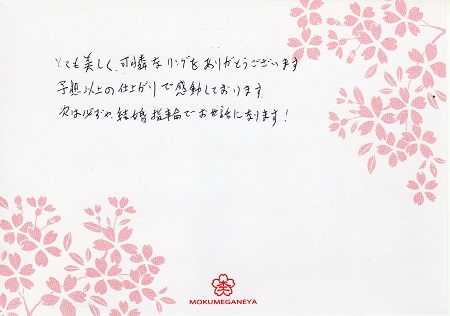 とても美しく、可憐なリングをありがとうございます
予想以上の仕上がりで感動しております。
次は必ずや結婚指輪でお世話になります!
MOKUMEGANEYA